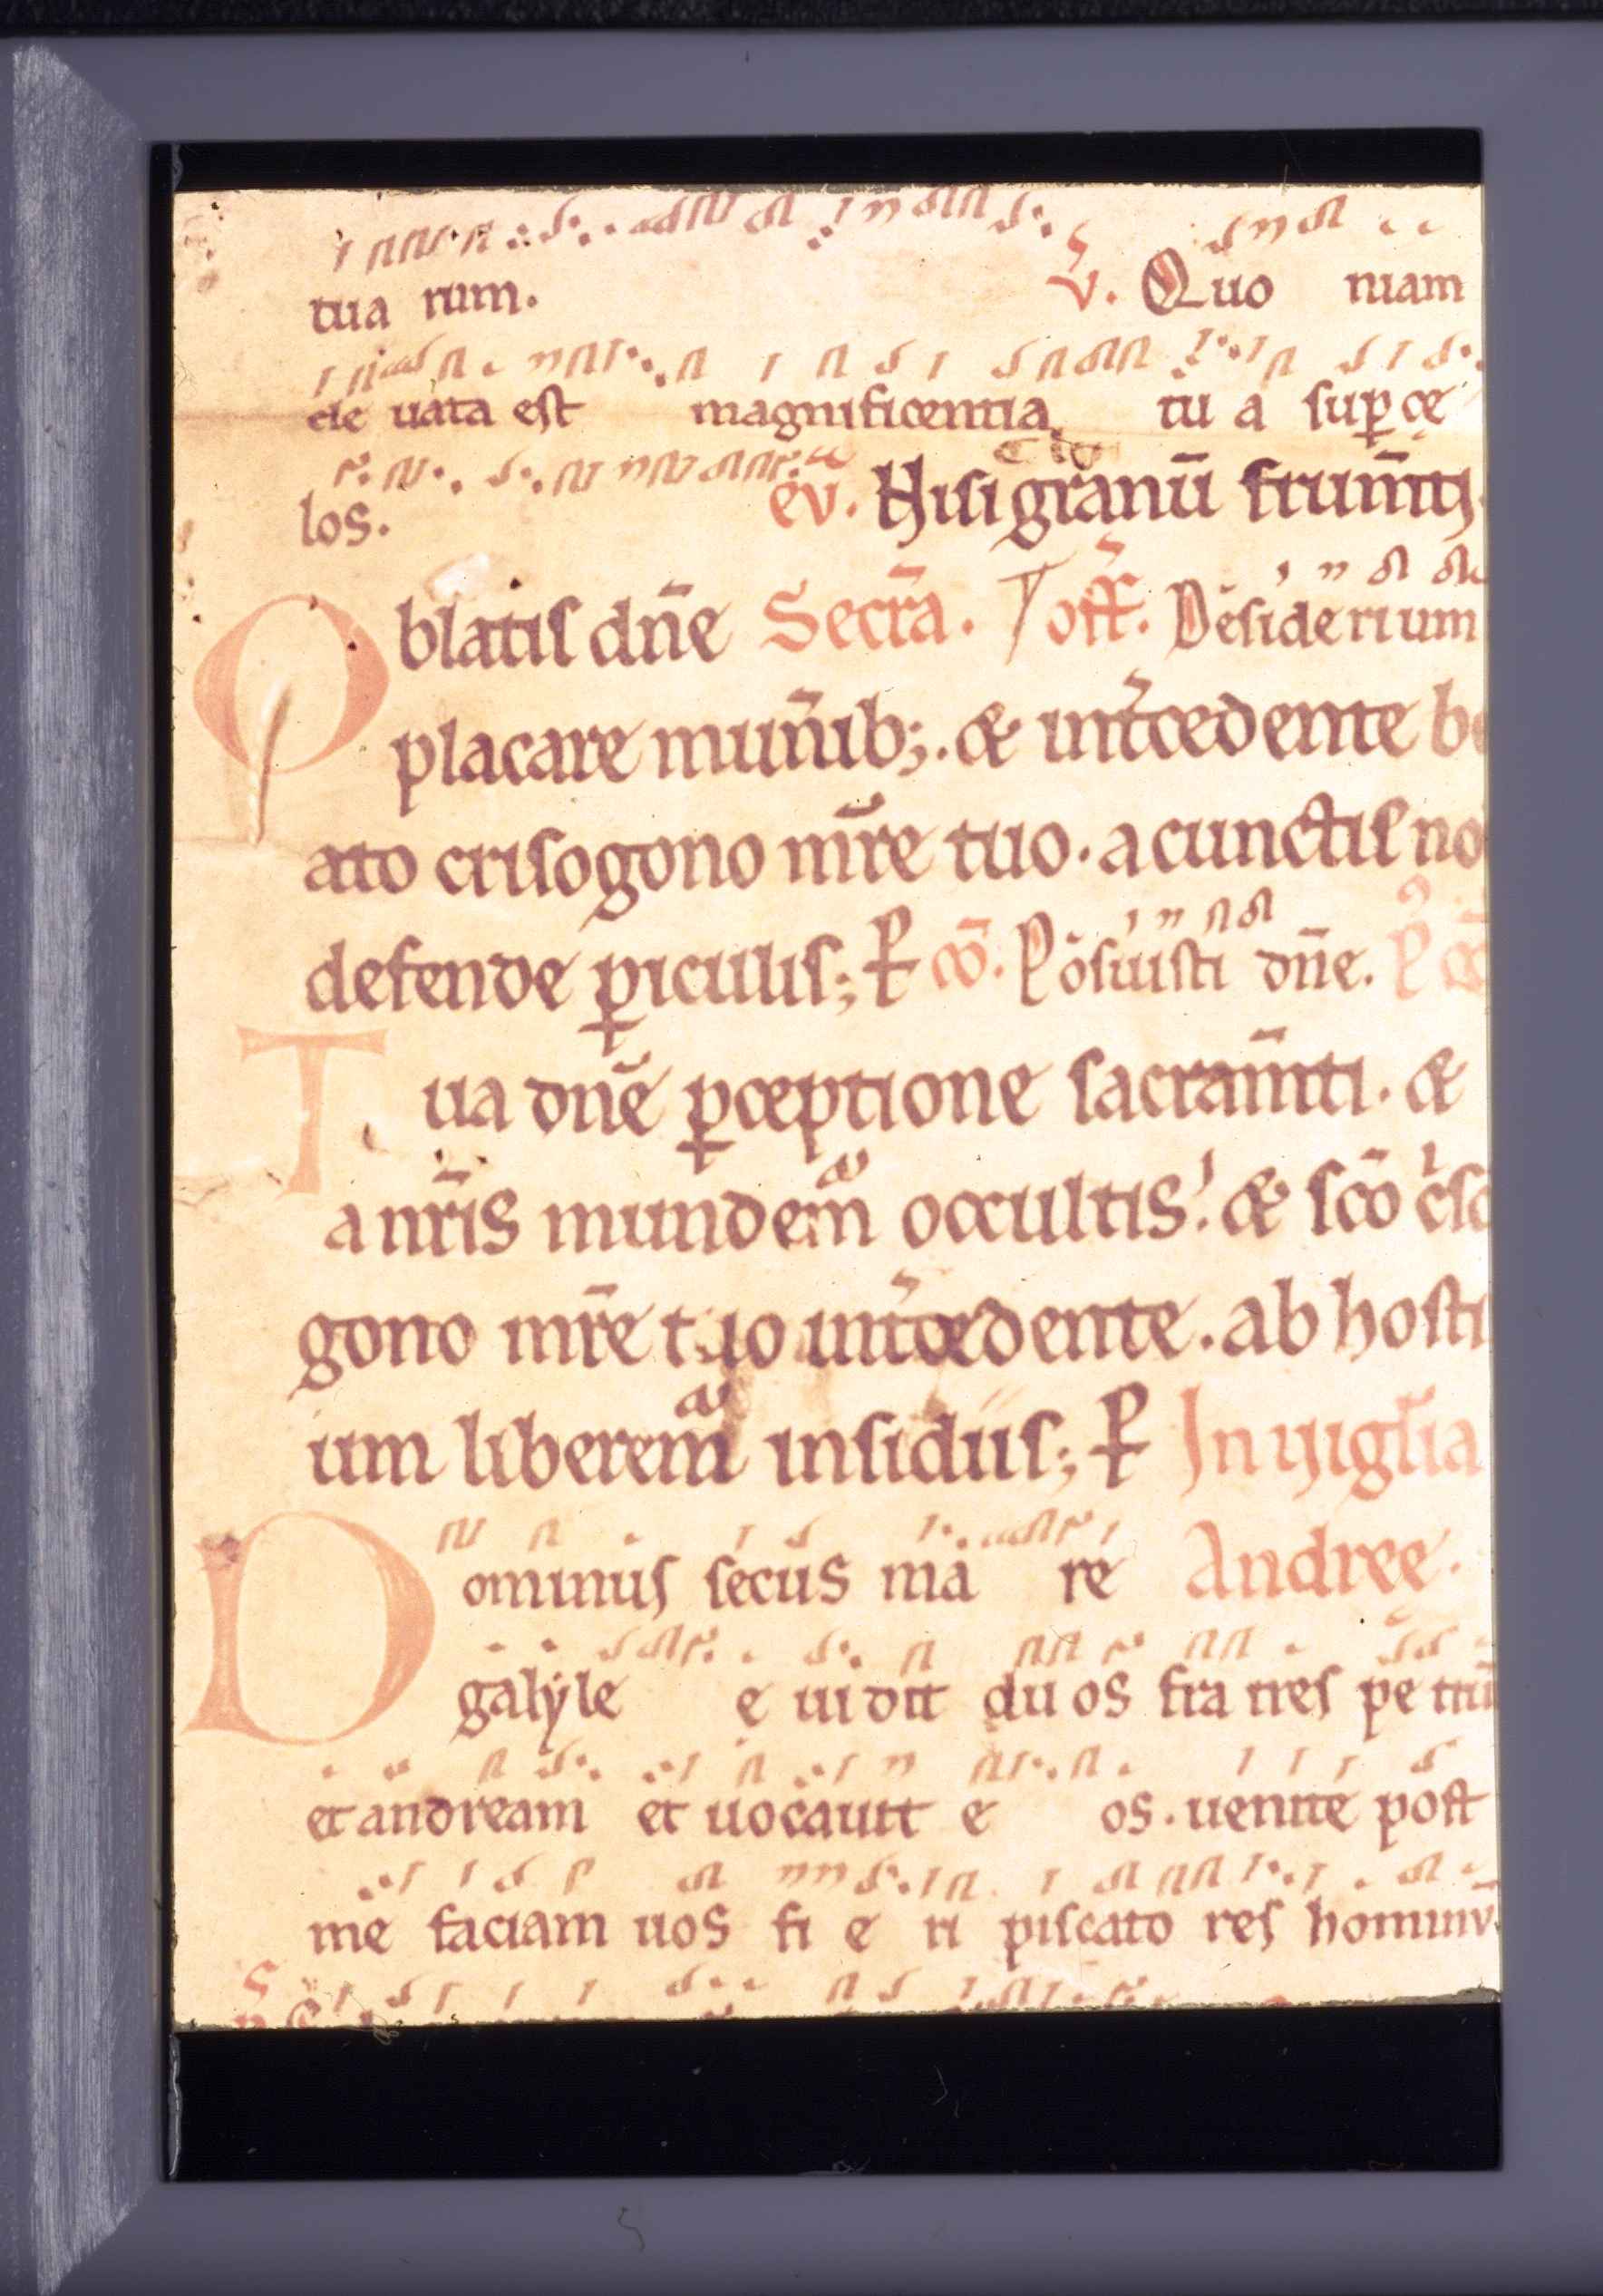 tua rum. v̄. Quo niam
ele uata est magnificentia tu a suꝑ cę
los. ev̄. Nisi granū frum̄ti
Oblatis dn̄e Secr̄a. off̄. Desiderium
placare mun̄ib; & int̄cedente be
ato crisogono mr̄e tuo. a cunctis no
defende ꝑiculis; P cō. Posuisti dn̄e. P cō
Tua dn̄e ꝑceptione sacram̄ti. &
a nr̄is mundem̄ occultis. & sc̄o c̄iso
gono mr̄e tuo int̄cedente. ab hosti
um liberem̄ insidiis; P In uigl̄ia
Dominus secus ma re Andree.
galyle e uidit du os fra tres pe trū
et andream et uocauit e os. uenite post
me faciam uos fi e ri piscato res hominū